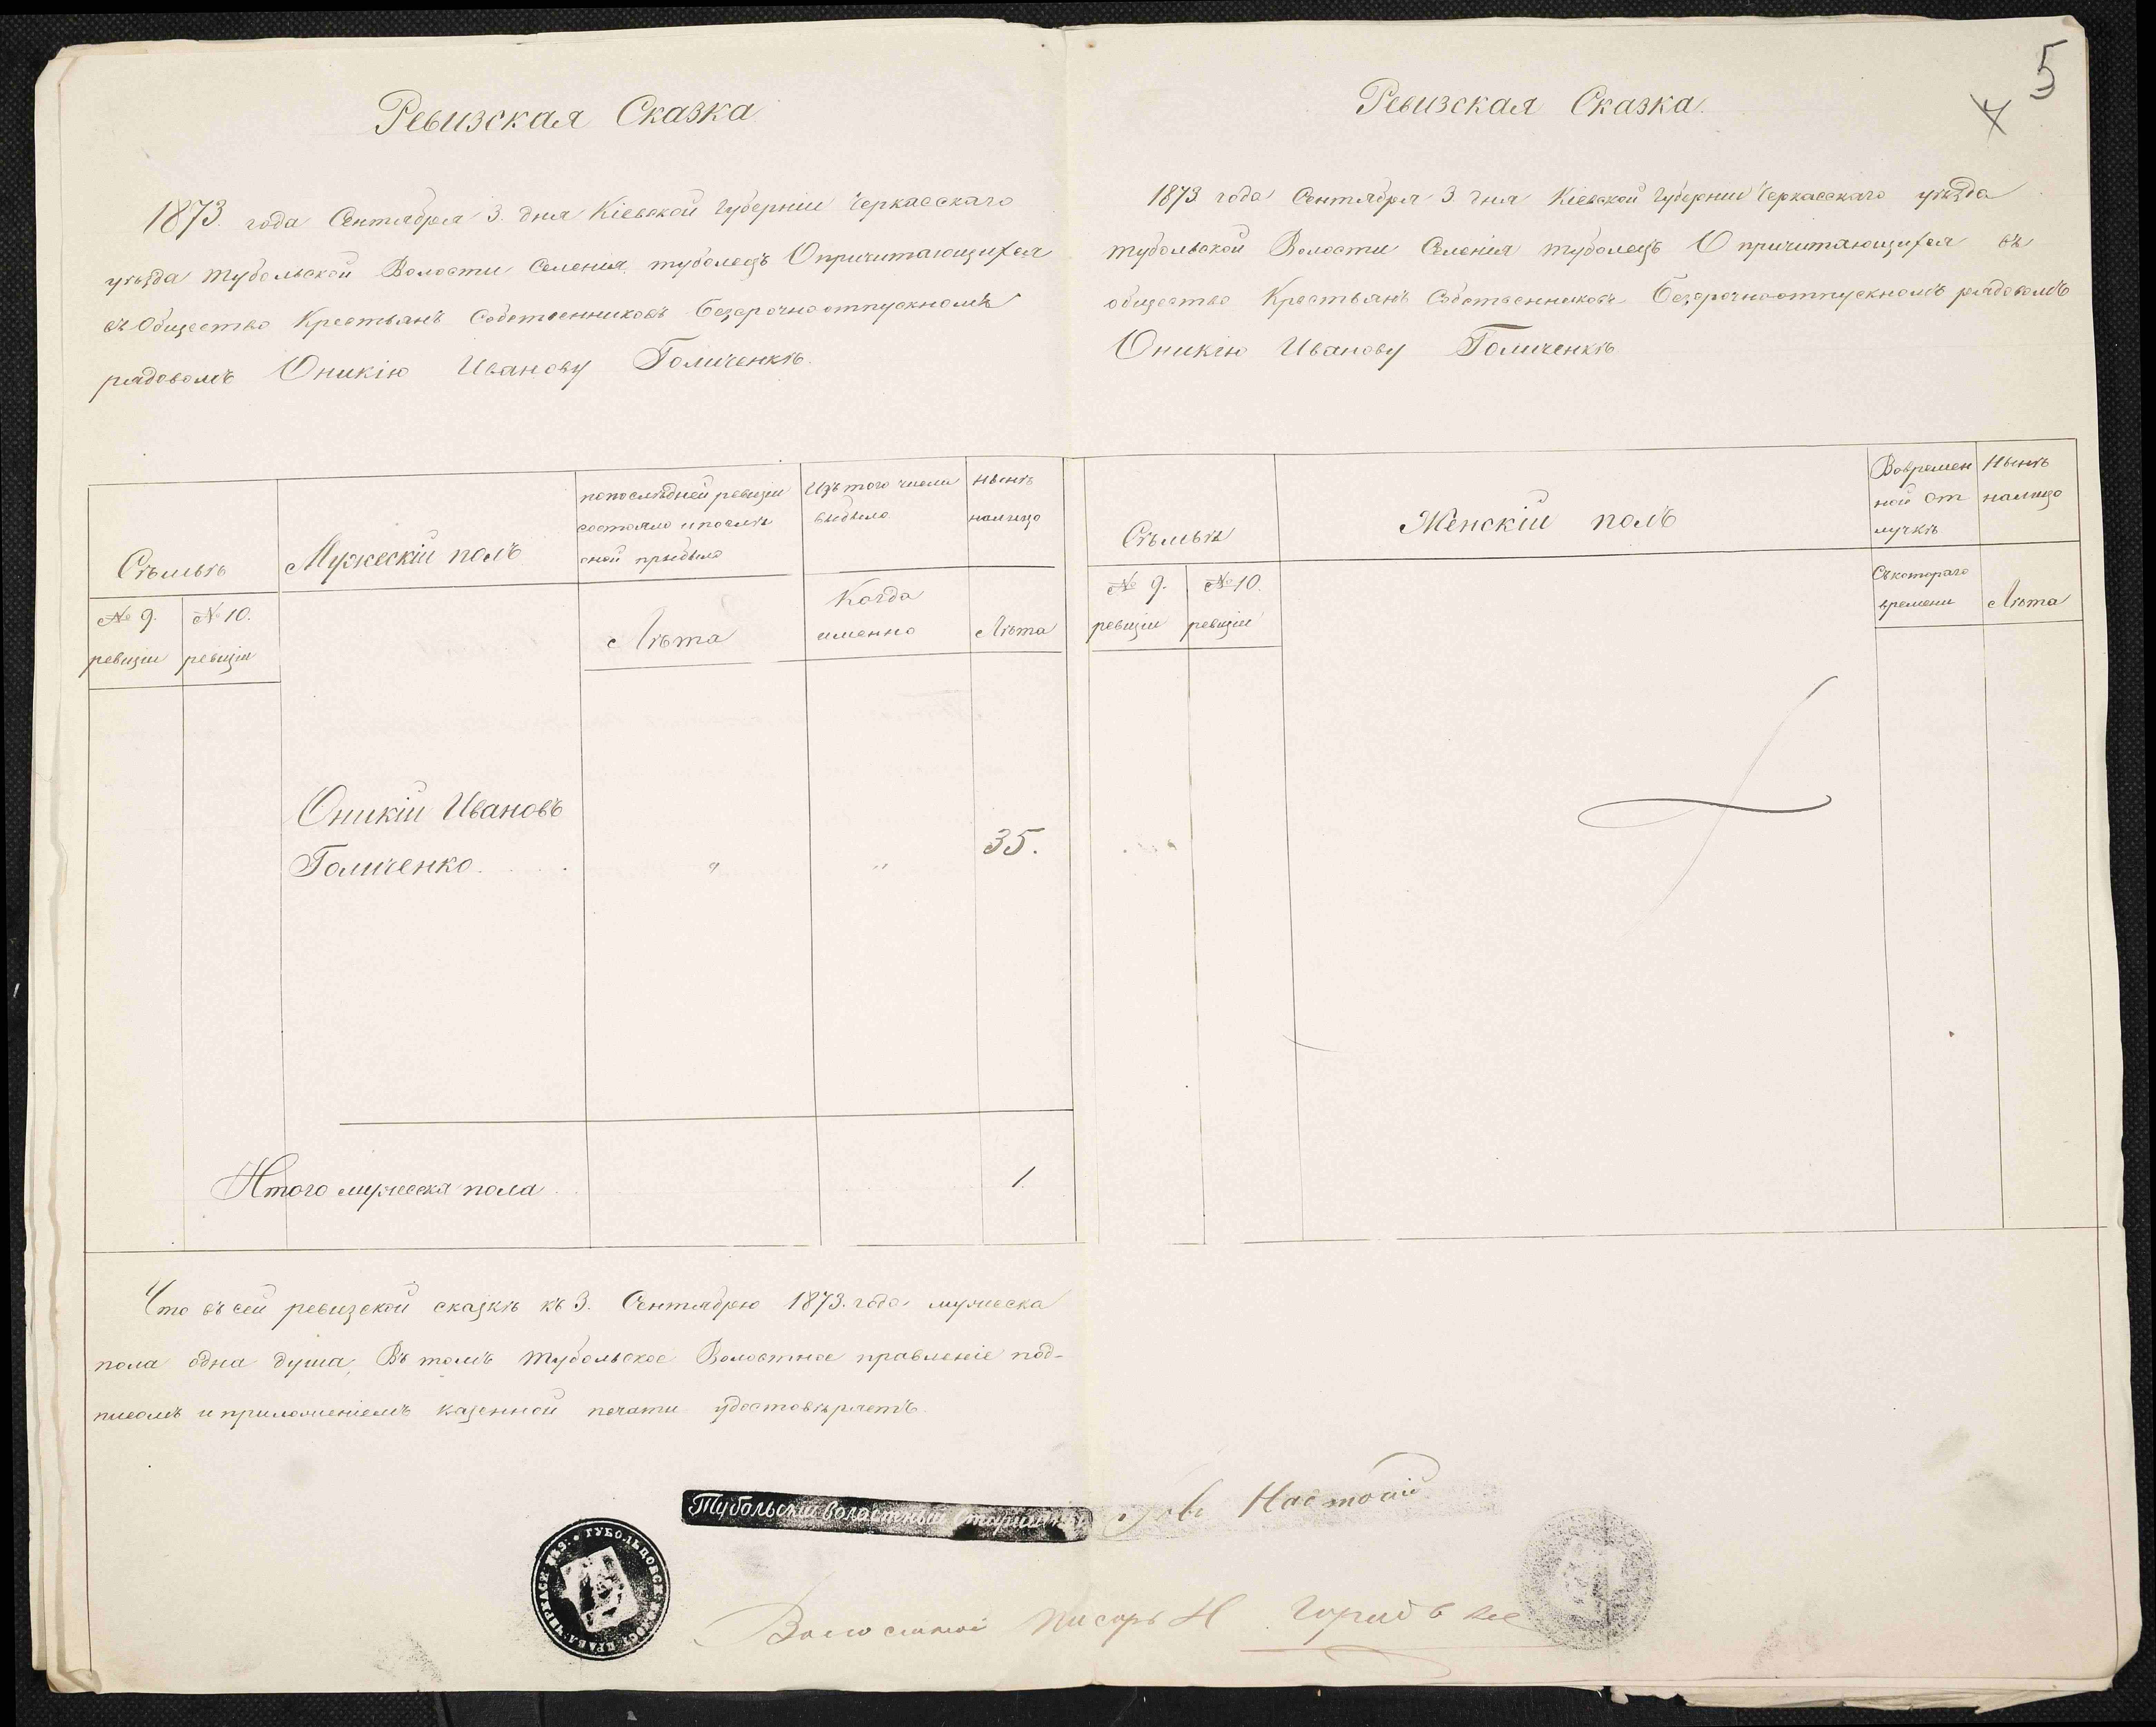 5
4
Ревизская Сказка
1873. года Сентября 3. дня Кіевской губерніи Черкасскаго
уѣзда тубольской Волости Селенія, туболецъ О причитающихся
въ Общество Крестьянъ Собственниковъ безсрочноотпускномъ
рядовомъ Оникію Иванову Голиченкѣ.
Семьѣ
Мужескій полъ
по послѣдней ревизіи
состояло и послѣ
оной прибыло
Изъ того числа
выбыло
нынѣ
налицо
№ 9.
ревизіи
№ 10.
ревизіи
Лѣта
Когда
именно
Лѣта
Оникій Ивановъ
Голиченко.
"
"
35.
Итого мужеска пола
1
Что въ сей ревизской сказкѣ къ 3. Сентябрю 1873. года мужеска
пола одна душа, Въ томъ тубольское Волостное правленіе под-
писомъ и приложеніемъ казенной печати удостовѣряетъ.
Тубольскій Волостный Старшина
Ревизская Сказка.
1873 года Сентября 3. дня Кіевской губерніи Черкасскаго уѣзда
тубольской Волости Селенія туболецъ О причитающихся въ
общество Крестьянъ Собственниковъ безсрочноотпускномъ рядовомъ
Оникію Иванову Голиченкѣ
Семьѣ
Женскій полъ
Во времен
ной от
лучкѣ
Нынѣ
налицо
№ 9.
ревизіи
№ 10.
ревизіи
Съ котораго
времени
Лѣта
Волостной Писарь Н